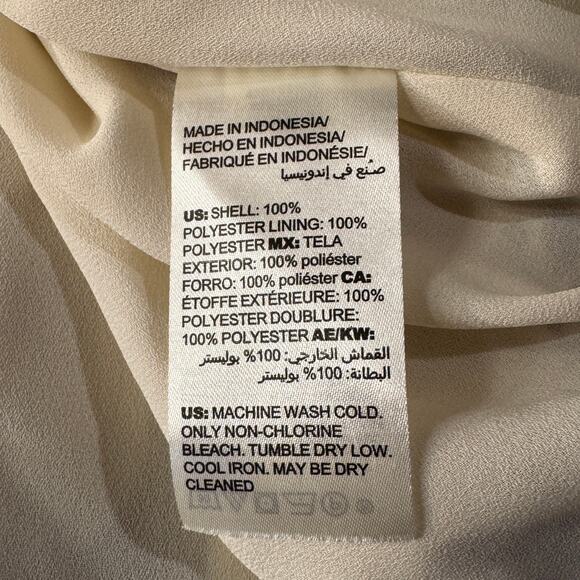 MADE IN INDONESIA/
HECHO EN INDONESIA/
FABRIQUÉ EN INDONÉSIE/
صنع في إندونيسيا
US: SHELL: 100%
POLYESTER LINING: 100%
POLYESTER MX: TELA
EXTERIOR: 100% poliéster
FORRO: 100% poliéster CA:
ÉTOFFE EXTÉRIEURE: 100%
POLYESTER DOUBLURE:
100% POLYESTER AE/KW:
القماش الخارجي: 100% بوليستر
البطانة: 100% بوليستر
US: MACHINE WASH COLD.
ONLY NON-CHLORINE
BLEACH. TUMBLE DRY LOW.
COOL IRON. MAY BE DRY
CLEANED